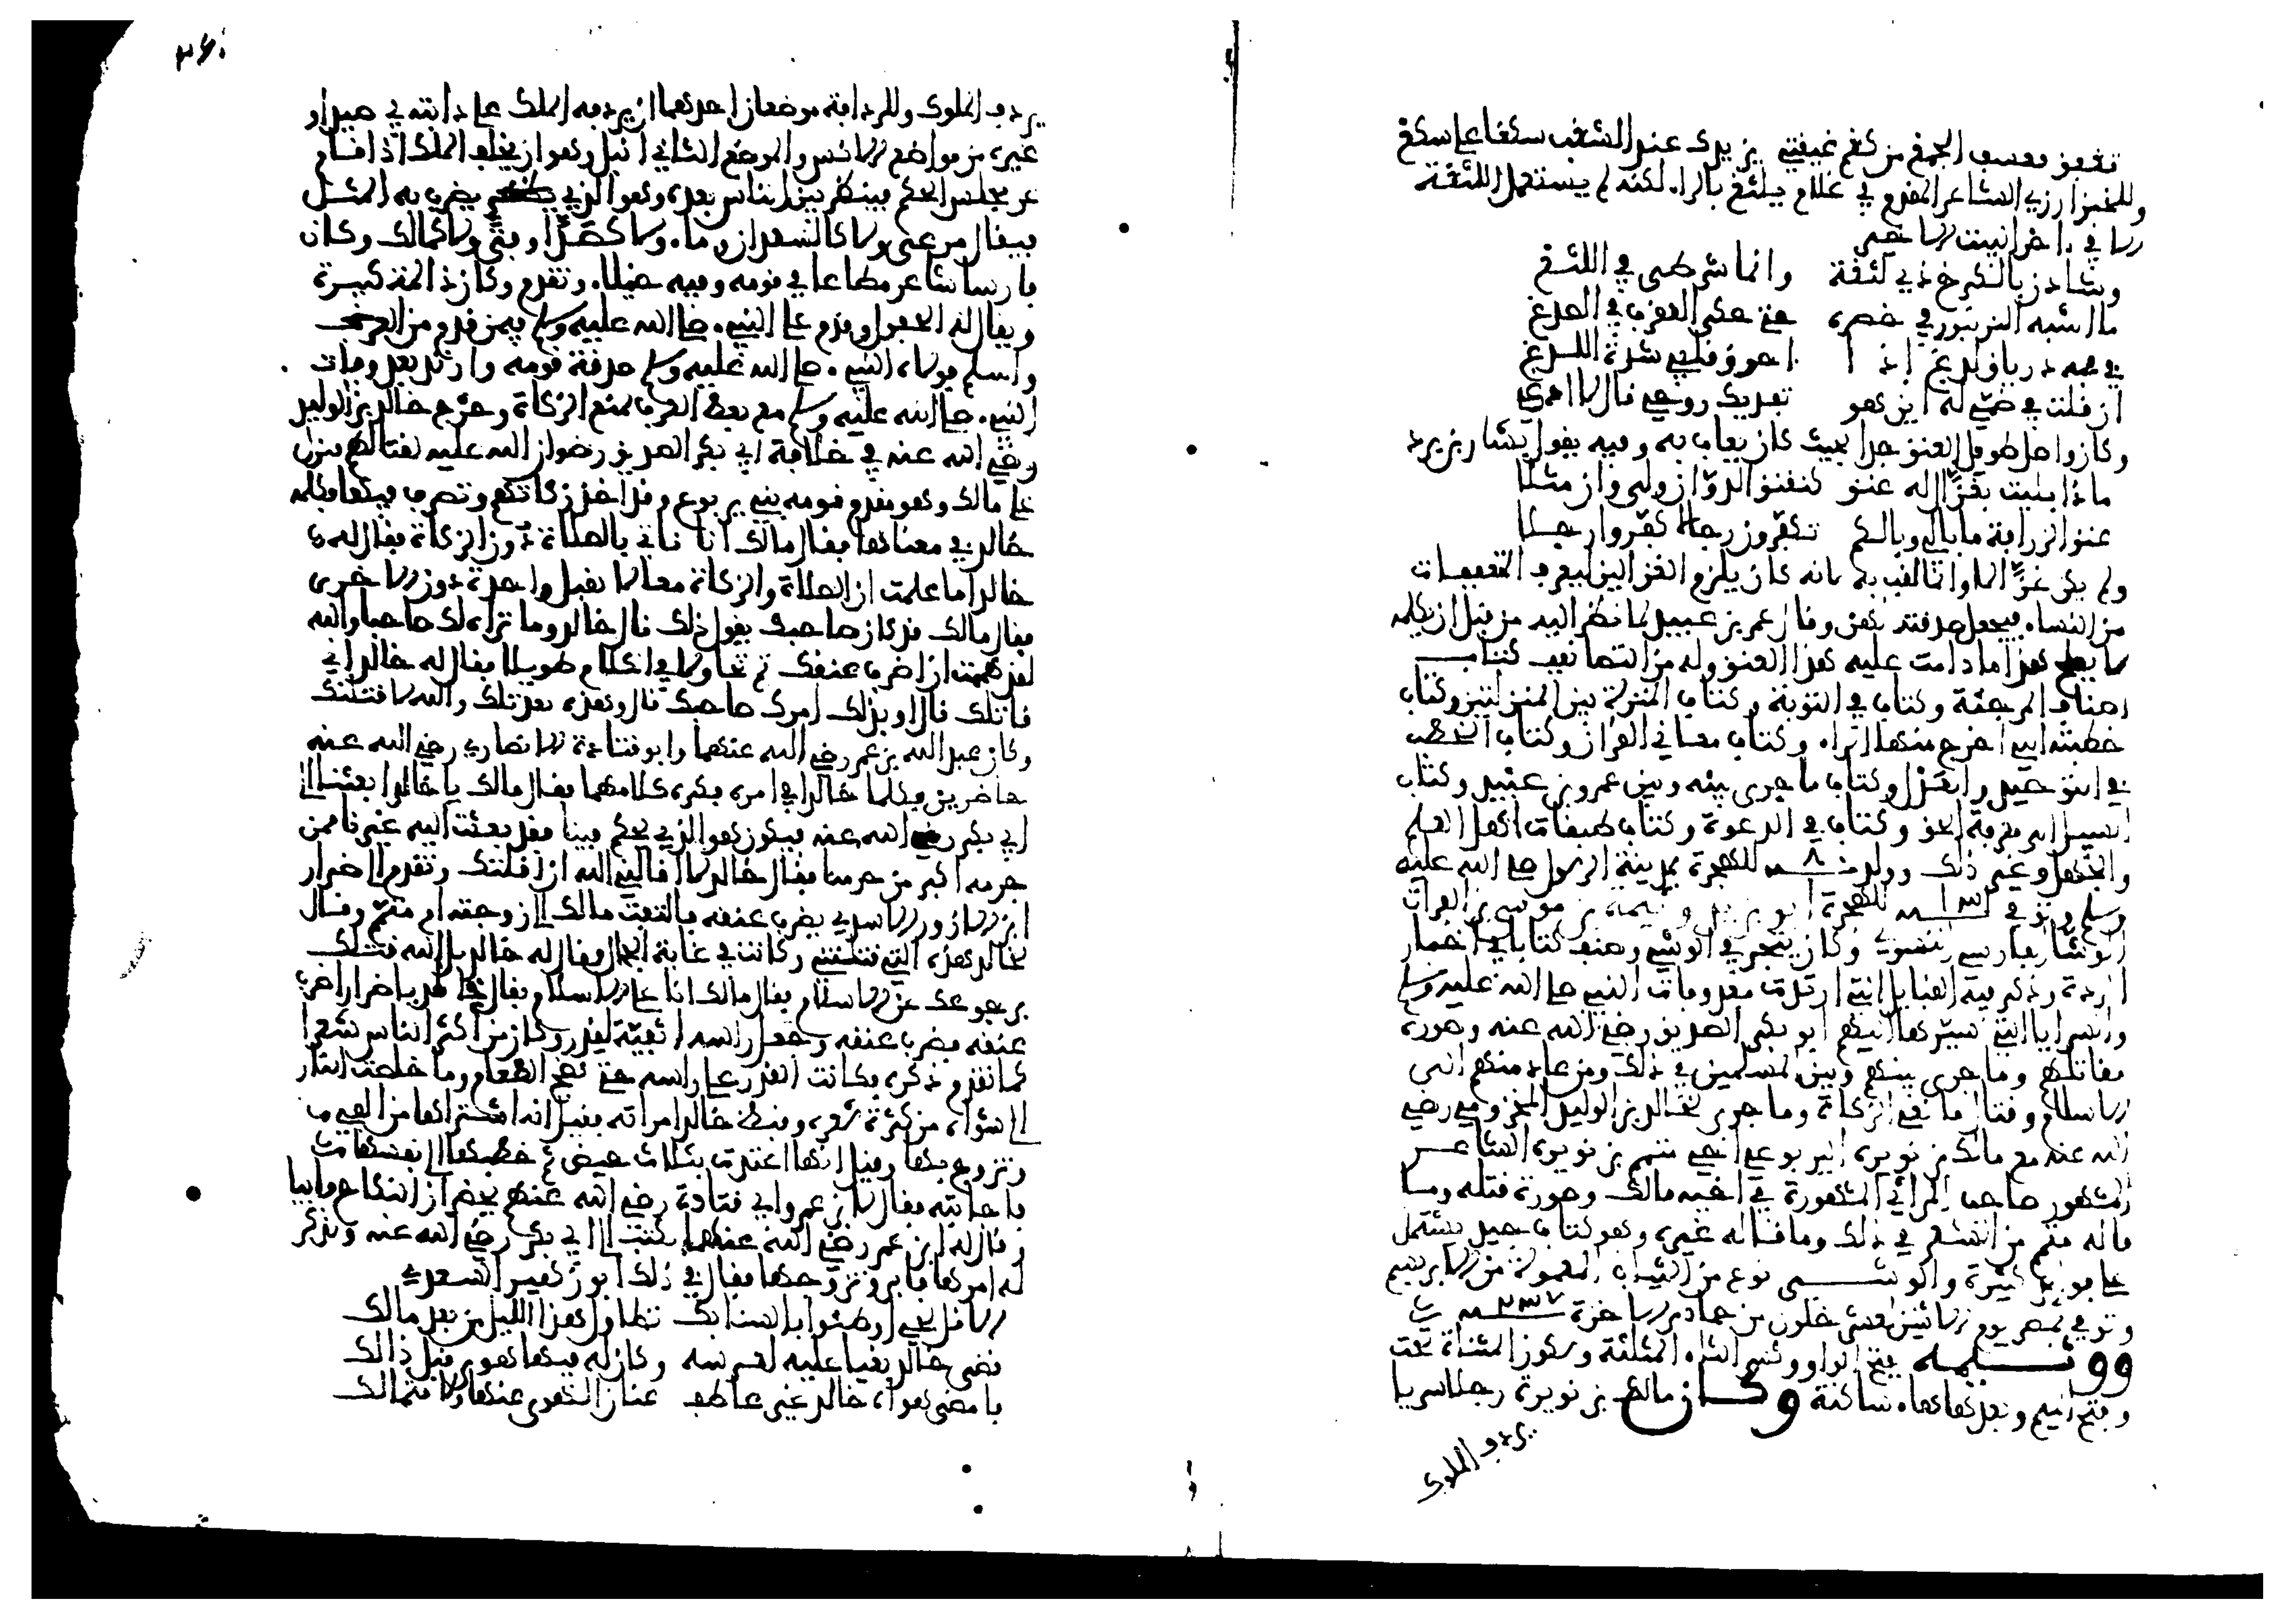 وللخبزارزي الشاعر المقدم في غلام يلثغ بالراء لكنه لم يستعمل اللثغة
الا في اخر البيت الاخير
وشادن بالكرخ ذي لثغة وانما شرطي في اللثغ
ما اشبه الزنبور في خصره حتى حكى العقرب في الصدغ
في فمه درياق لدغ اذا احرق قلبي شدة اللدغ
ان قلت في ضمي له اين هو تفديك روحي قال لا ادغي
وكان واصل طويل العنق جدا بحيث كان يعاب به وفيه يقول بشار بن برد
ماذا بليت بغزال له عنق كنقنق الدو ان ولى وان مثلا
عنق الزرافة ما بالي وبالكم تكفرون رجالا كفروا رجلا
ولم يكن غزالا وانما لقب به لانه كان يلزم الغزالين ليعرف المتعففات
من النساء فيجعل صدقته لهن وقال عمر بن عبيد لما نظر اليه من قبل ان يكلمه
لا يفلح هذا ما دامت عليه هذا العنق وله من التصانيف كتاب
اصناف المرجئة وكتاب في التوبة وكتاب المنزلة بين المنزلتين وكتاب
خطبته التي اخرج منها الراء وكتاب معاني القران وكتاب الخطب
في التوحيد والعدل وكتاب ما جرى بينه وبين عمرو بن عبيد وكتاب
السبيل الى معرفة الحق وكتاب في الدعوة وكتاب طبقات اهل العلم
والجهل وغير ذلك وولد سنة ٨٠ للهجرة بمدينة الرسول صلى الله عليه
وسلم وتوفي سنة ١٣١ للهجرة ابو يزيد وثيمة بن موسى بن الفرات
الوشاء الفارسي الفسوي وكان يتجر في الوشي وصنف كتابا في اخبار
الردة وذكر فيه القبايل التي ارتدت بعد وفات النبي صلى الله عليه وسلم
والسرايا التي سيرها اليهم ابو بكر الصديق رضي الله عنه وصورة
مقاتلتهم وما جرى بينهم وبين المسلمين في ذلك ومن عاد منهم الى
الاسلام وقتال مانعي الزكاة وما جرى لخالد بن الوليد المخزومي رضي
الله عنه مع مالك بن نويرة اليربوعي اخي متمم بن نويرة الشاعر
المشهور صاحب المراثي المشهورة في اخيه مالك وصورة قتله وما
قاله متمم من الشعر في ذلك وما قاله غيره وهو كتاب جيد يشتمل
على فوايد كثيرة والوشي نوع من الثياب المعمولة من الابريسم
وتوفي بمصر يوم الاثنين لعشر خلون من جمادى الاخرة سنة ٢٣٧
ووثيمه بفتح الواو وكسر الثاء المثلثة وسكون المثناة تحت
وفتح الميم وبعدها هاء ساكنة وكان مالك بن نويرة رجلا سريا
يردف الملوك
يردف الملوك وللردافة موضعان احدهما ان يردفه الملك على دابته في صيد او
غيره من مواضع الانس والموضع الثاني انبل وهو ان يخلف الملك اذا قام
عن مجلس الحكم فينظر بين الناس بعده وهو الذي يضرب به المثل
فيقال مرعى ولا كالسعدان وماء ولا كصداء وفتى ولا كمالك وكان
فارسا شاعرا مطاعا في قومه وفيه خيلاء وتقدم وكان ذا لمة كبيرة
ويقال له الجفول وقدم على النبي صلى الله عليه وسلم فيمن قدم من العرب
واسلم فولاه النبي صلى الله عليه وسلم صدقة قومه وارتد بعد وفات
النبي صلى الله عليه وسلم مع بعض العرب بمنع الزكاة وخرج خالد بن الوليد
رضي الله عنه في خلافة ابي بكر الصديق رضوان الله عليه لقتالهم فنزل
على مالك وهو مقدم قومه بني يربوع وقد اخذ زكاتهم وتصرف فيها وكلمه
خالد في معناها فقال مالك انا ناتي بالصلاة دون الزكاة فقال له
خالد اما علمت ان الصلاة والزكاة معا لا تقبل واحدة دون الاخرى
فقال مالك قد كان صاحبك يقول ذلك قال خالد وما تراه لك صاحبا والله
لقد هممت ان اضرب عنقك ثم تجاولا في الكلام طويلا فقال له خالد اني
قاتلك قال اوبذلك امرك صاحبك قال وهذه بعد تلك والله لاقتلنك
وكان عبد الله بن عمر رضي الله عنهما وابو قتادة الانصاري رضي الله عنه
حاضرين فكلما خالدا في امره فكره كلامهما فقال مالك يا خالد ابعثنا الى
ابي بكر رضي الله عنه فيكون هو الذي يحكم فينا فقد بعثت اليه غيرنا ممن
جرمه اكبر من جرمنا فقال خالد لا اقالني الله ان اقلتك وتقدم الى ضرار
ابن الازور الاسدي بضرب عنقه فالتفت مالك الى زوجته ام متمم وقال
لخالد هذه التي قتلتني وكانت في غاية الجمال وقال له خالد بل الله قتلك
برجوعك عن الاسلام فقال مالك انا على الاسلام فقال خالد يا ضرار اضرب
عنقه فضرب عنقه وجعل راسه اثفية لقدر وكان من اكثر الناس شعرا
كما تقدم ذكره فكانت القدر على راسه حتى نضج الطعام وما خلصت النار
الى شواه من كثرة شعره وقبض خالد امراته فقيل انه اشتراها من الفيء
وتزوج بها وقيل انها اعتدت بثلاث حيض ثم خطبها الى نفسها
فاجابته فقال لابن عمر وابي قتادة رضي الله عنهم يحضران النكاح فابيا
وقال له ابن عمر رضي الله عنهما تكتب الى ابي بكر رضي الله عنه وتذكر
له امرها فابى وتزوجها فقال في ذلك ابو زهير السعدي
الا قل لحي اوطئوا بالسنابك تطاول هذا الليل من بعد مالك
قضى خالد بغيا عليه لعرسه وكان له فيها هوى قبل ذالك
فامضى هواه خالد غير عاطف عنان الهوى عنها ولا متمالك